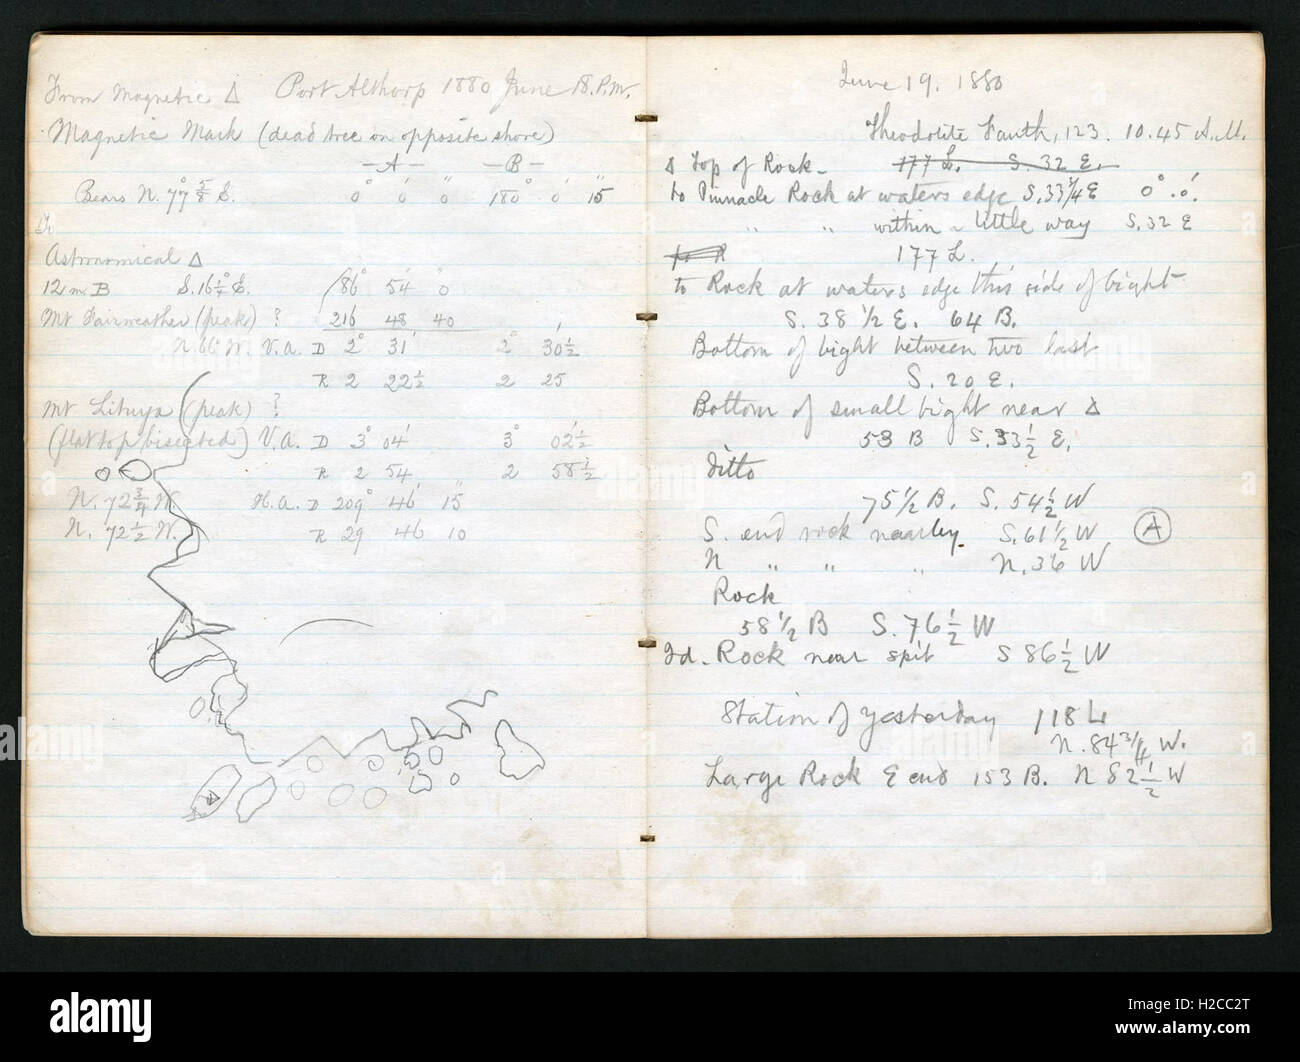 From Magnetic Δ Port Althorp 1880 June 18. P.M.
Magnetic Mark (dead tree on opposite shore)
— A — — B —
Bears N. 77° 5/8 E. 0° 0' 0" 180° 0' 15"
Astronomical Δ
12 m. B S. 16 1/4° E. 86° 54' 0"
Mt Fairweather (peak) ? 216 48 40
N. 66° W. V.a. D 2° 31' 2° 30 1/2'
R 2 22 1/2 2 25
Mt Lituya (peak) ?
(flat top bisected) V.a. D 3° 04' 3° 02 1/2'
R 2 54 2 58 1/2
N. 72 3/4 W. H.a. D 209° 46' 15"
N. 72 1/2 W. R 29 46 10
June 19, 1880
Theodolite Fauth, 123. 10.45 A.M.
Δ Top of Rock - 177 L. S. 32 E.
to Pinnacle Rock at waters edge S. 33 3/4 E 0°.0'.
" " within a little way S. 32 E
177 L.
to Rock at waters edge this side of bight
S. 38 1/2 E. 64 B.
Bottom of bight between two last
S. 20 E.
Bottom of small bight near Δ
53 B S. 33 1/2 E.
Ditto
75 1/2 B. S. 54 1/2 W
S. end rock nearby. S. 61 1/2 W (A)
N " " " N. 36 W
Rock
58 1/2 B S. 76 1/2 W
Id. Rock near spit S 86 1/2 W
Station of yesterday 118 L
N. 84 3/4 W.
Large Rock E end 153 B. N 82 1/2 W
alamy
H2CC2T
www.alamy.com